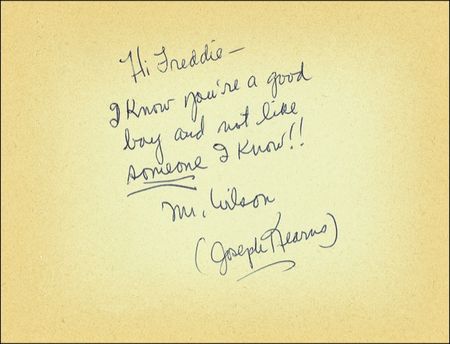 Hi Freddie—
I know you're a good
boy and not like
someone I know!!
Mr. Wilson
(Joseph Kearns)